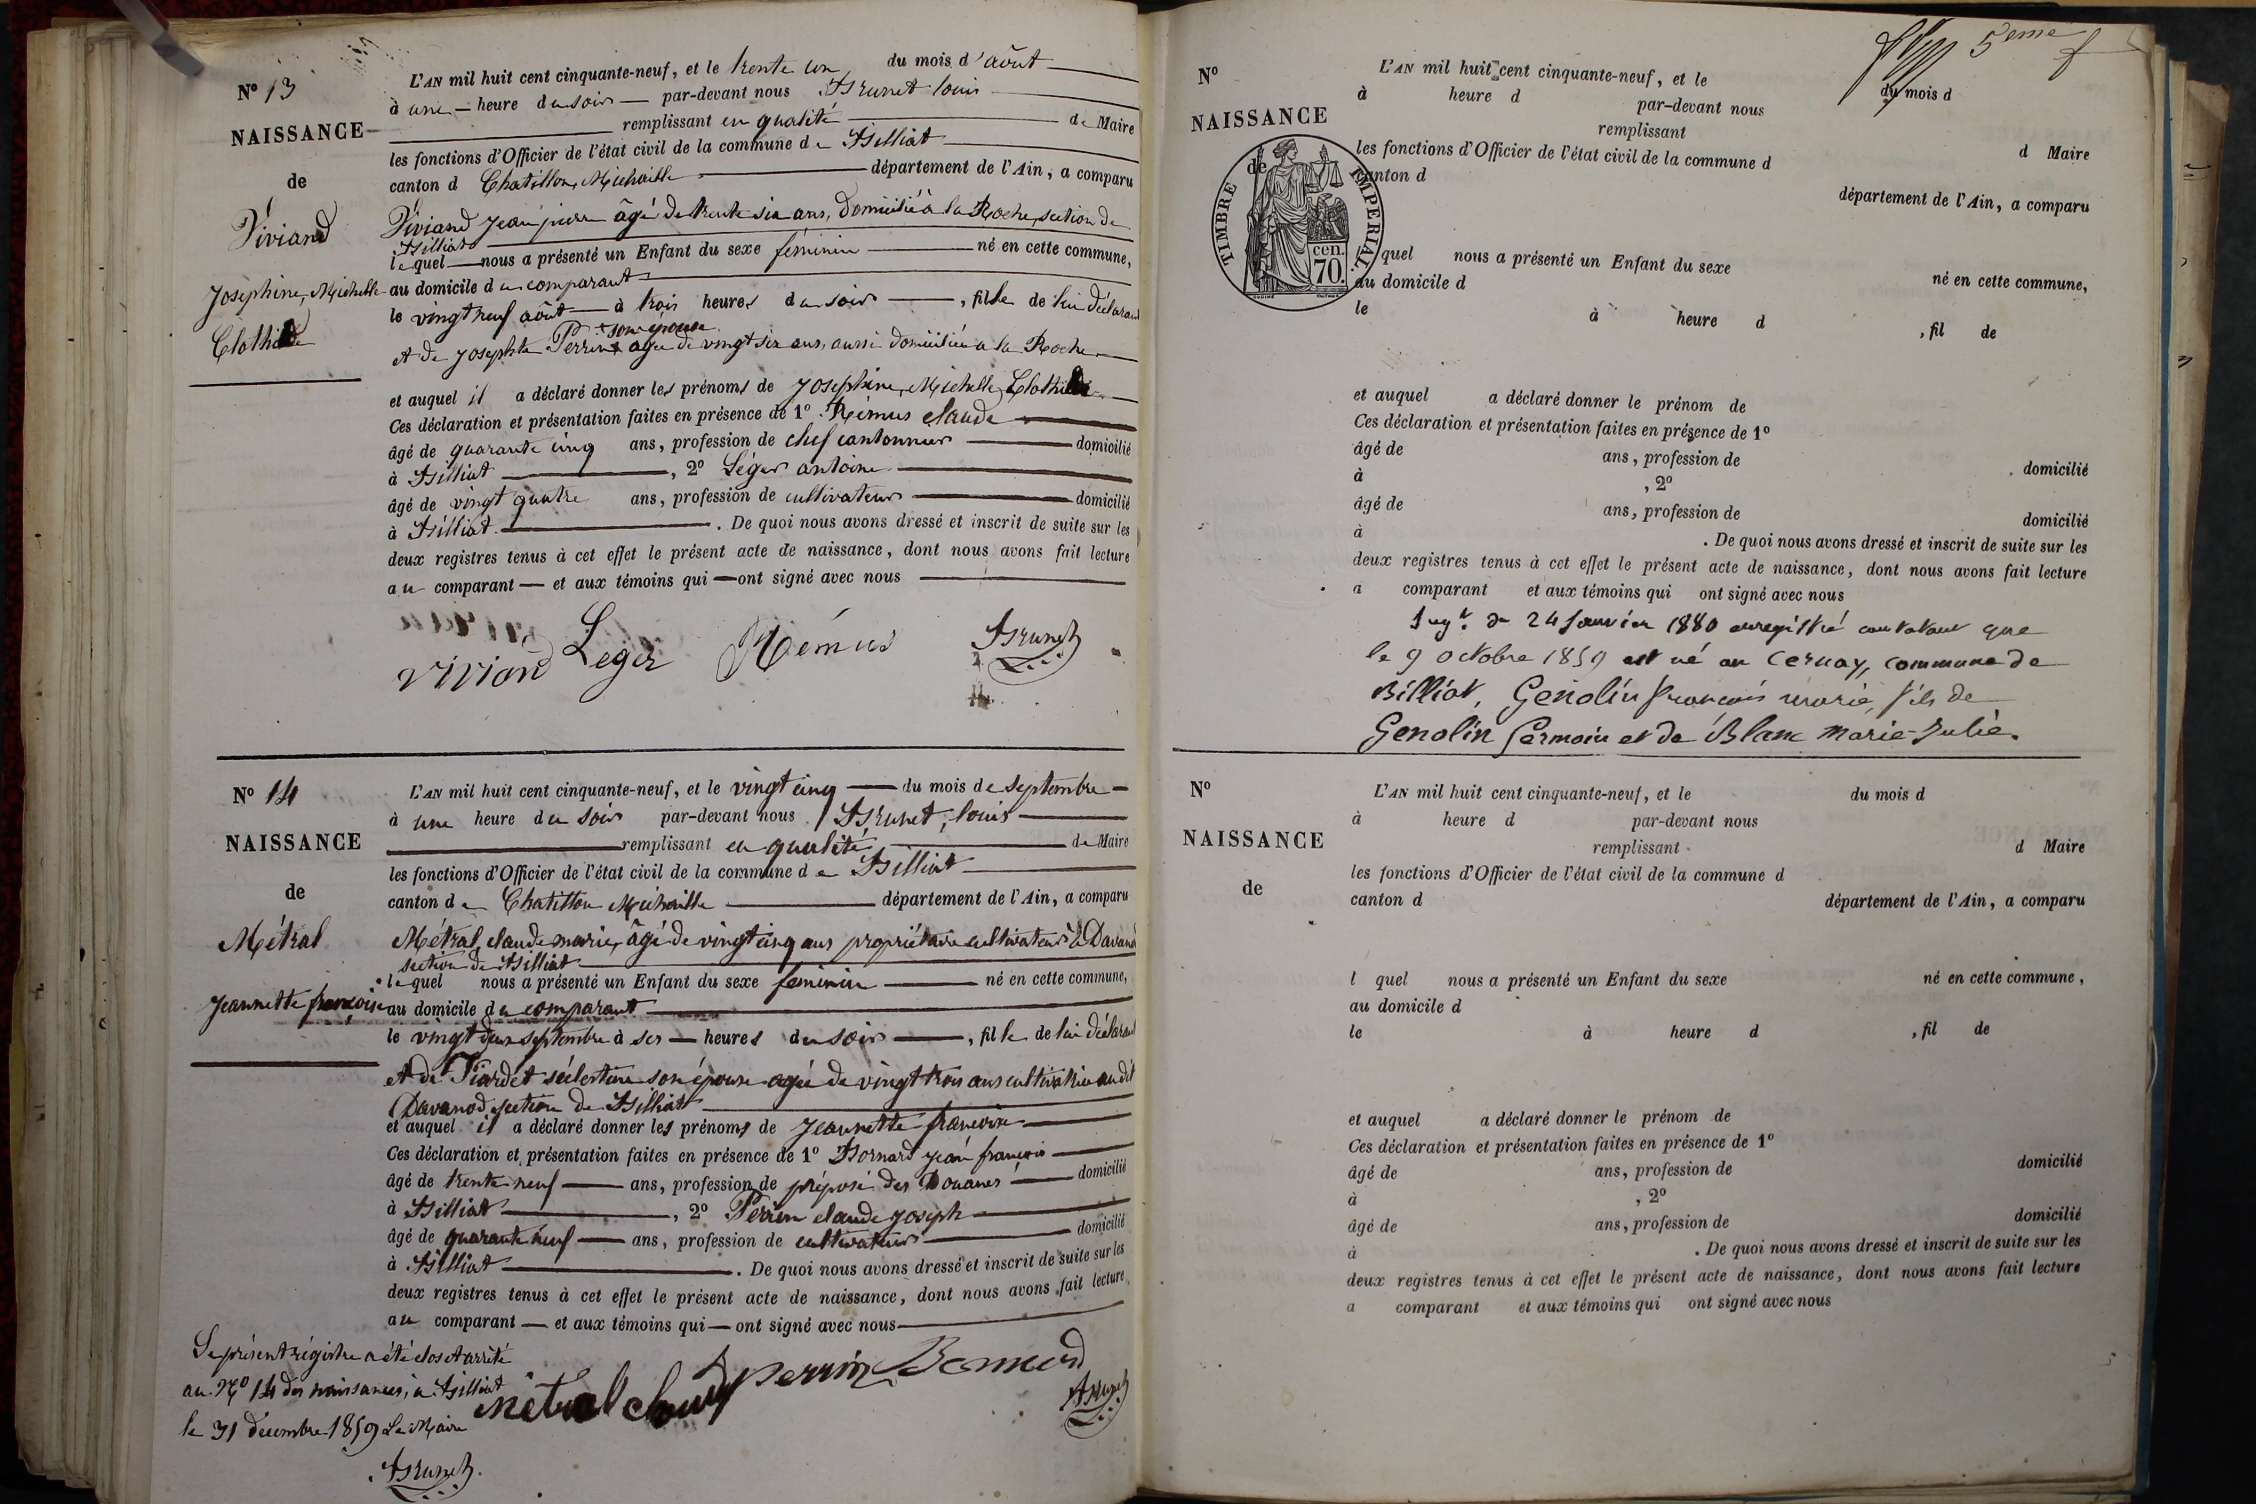 N° 13
NAISSANCE
de
Viviand
Josephine, Michelle
Clothilde
L'AN mil huit cent cinquante-neuf, et le trente un du mois d'août
à une heure du soir par-devant nous Brunet louis
remplissant en qualité de Maire
les fonctions d'Officier de l'état civil de la commune de Billiat
canton d Chatillon, Michaille département de l'Ain, a comparu
Viviand Jean pierre âgé de trente six ans, Domicilié à la Roche, section de
Billiat
lequel nous a présenté un Enfant du sexe féminin né en cette commune,
au domicile du comparant
le vingt neuf août à trois heures du soir, fille de lui déclarant
+ son épouse
et de Josephte Perrin + agée de vingt six ans, aussi domiciliée a la Roche
et auquel il a déclaré donner les prénoms de Josephine, Michelle, Clothilde
Ces déclaration et présentation faites en présence de 1° Rémus claude
âgé de quarante cinq ans, profession de chef cantonnier domicilié
à Billiat, 2° Léger antoine
âgé de vingt quatre ans, profession de cultivateur domicilié
à Billiat. De quoi nous avons dressé et inscrit de suite sur les
deux registres tenus à cet effet le présent acte de naissance, dont nous avons fait lecture
au comparant et aux témoins qui ont signé avec nous
Viviand Leger Rémus Brunet
N° 14
NAISSANCE
de
Métral
Jeannette françoise
L'AN mil huit cent cinquante-neuf, et le vingt cinq du mois de septembre
à une heure du soir par-devant nous Brunet, louis
remplissant en qualité de Maire
les fonctions d'Officier de l'état civil de la commune de Billiat
canton de Chatillon Michaille département de l'Ain, a comparu
Métral, claude marie, âgé de vingt cinq ans propriétaire cultivateur à Davanod
section de Billiat
lequel nous a présenté un Enfant du sexe feminin né en cette commune,
au domicile du comparant
le vingt deux septembre à six heures du soir, fille de lui déclarant
et de célestine son épouse agée de vingt trois ans cultivatrice au dit
Davanod section de Billiat
et auquel il a déclaré donner les prénoms de Jeannette françoise
Ces déclaration et présentation faites en présence de 1° Bornard Jean françois
âgé de trente neuf ans, profession de préposé des Douanes domicilié
à Billiat, 2° Perrin claude Joseph
âgé de quarante neuf ans, profession de cultivateur domicilié
à Billiat. De quoi nous avons dressé et inscrit de suite sur les
deux registres tenus à cet effet le présent acte de naissance, dont nous avons fait lecture
au comparant et aux témoins qui ont signé avec nous
métral claude perrin Bornard
Brunet
Le présent régistre a été clos et arrêté
au N° 14 des naissances, à Billiat
le 31 décembre 1859 Le Maire
Brunet
5eme f
N°
NAISSANCE
de
TIMBRE IMPERIAL.
cen.
70.
L'AN mil huit cent cinquante-neuf, et le du mois d
à heure d par-devant nous
remplissant d Maire
les fonctions d'Officier de l'état civil de la commune d
canton d département de l'Ain, a comparu
quel nous a présenté un Enfant du sexe né en cette commune,
au domicile d
le à heure d , fil de
et auquel a déclaré donner le prénom de
Ces déclaration et présentation faites en présence de 1°
âgé de ans, profession de domicilié
à , 2°
âgé de ans, profession de domicilié
à . De quoi nous avons dressé et inscrit de suite sur les
deux registres tenus à cet effet le présent acte de naissance, dont nous avons fait lecture
a comparant et aux témoins qui ont signé avec nous
Jugt. du 24 Janvier 1880 enregistré constatant que
le 9 octobre 1859 est né au Cernay, commune de
Billiat, Genolin françois marie, fils de
Genolin Germain et de Blanc Marie-Julie.
N°
NAISSANCE
de
L'AN mil huit cent cinquante-neuf, et le du mois d
à heure d par-devant nous
remplissant d Maire
les fonctions d'Officier de l'état civil de la commune d
canton d département de l'Ain, a comparu
l quel nous a présenté un Enfant du sexe né en cette commune,
au domicile d
le à heure d , fil de
et auquel a déclaré donner le prénom de
Ces déclaration et présentation faites en présence de 1°
âgé de ans, profession de domicilié
à , 2°
âgé de ans, profession de domicilié
à . De quoi nous avons dressé et inscrit de suite sur les
deux registres tenus à cet effet le présent acte de naissance, dont nous avons fait lecture
a comparant et aux témoins qui ont signé avec nous